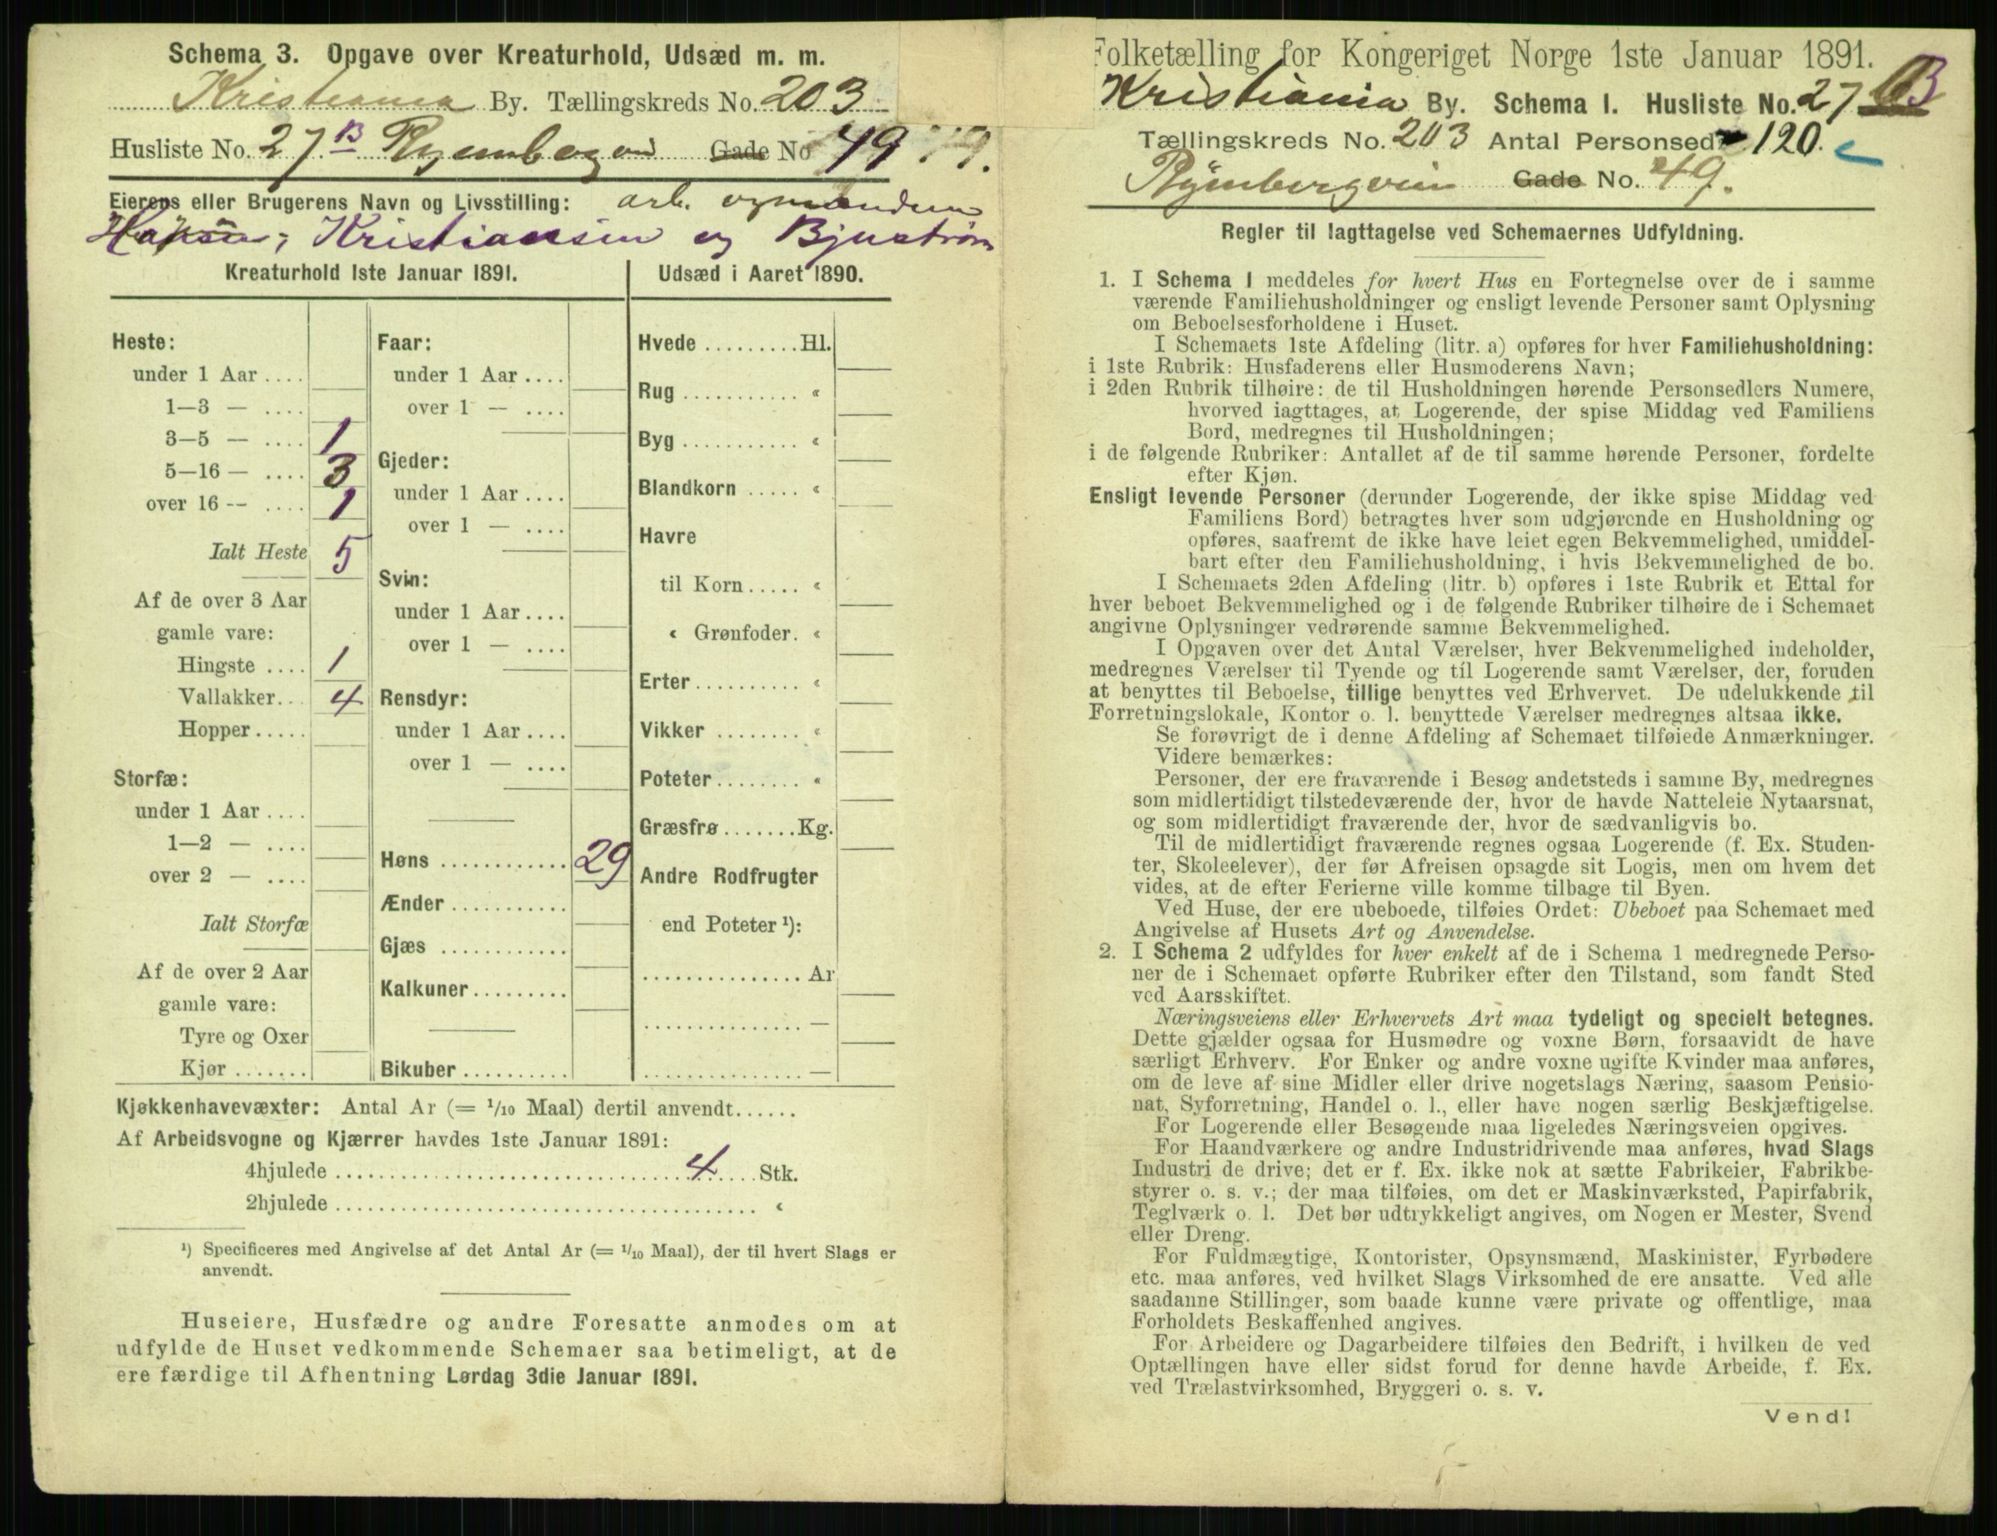 Schema 3. Opgave over Kreaturhold, Udsæd m. m.
Kristiania By. Tællingskreds No. 203
Husliste No. 27 B Gade No 49
Eierens eller Brugerens Navn og Livsstilling: arb.
Kristiansen og Bjustrøm
Kreaturhold 1ste Januar 1891.
Heste:
under 1 Aar ....
1—3 — ....
3—5 — .... 1
5—16 — .... 3
over 16 -- .... 1
Ialt Heste 5
Af de over 3 Aar
gamle vare:
Hingste .... 1
Vallakker.. 4
Hopper.....
Storfæ:
under 1 Aar ....
1—2 — ....
over 2 — ....
Ialt Storfæ
Af de over 2 Aar
gamle vare:
Tyre og Oxer
Kjør .......
Faar:
under 1 Aar ....
over 1 — ....
Gjeder:
under 1 Aar ....
over 1 — ....
Svin:
under 1 Aar ....
over 1 — ....
Rensdyr:
under 1 Aar ....
over 1 — ....
Høns ............ 29
Ænder ...........
Gjæs ............
Kalkuner.........
Bikuber ..........
Udsæd i Aaret 1890.
Hvede .........Hl.
Rug ........... «
Byg ........... «
Blandkorn ..... «
Havre
til Korn..... «
« Grønfoder. «
Erter.......... «
Vikker ........ «
Poteter........ «
Græsfrø .......Kg.
Andre Rodfrugter
end Poteter ¹):
............... Ar
............... —
............... —
Kjøkkenhavevæxter: Antal Ar (= 1/10 Maal) dertil anvendt......
Af Arbeidsvogne og Kjærrer havdes 1ste Januar 1891:
4hjulede .................................. 4 .... Stk.
2hjulede ...................................... «
¹) Specificeres med Angivelse af det Antal Ar (= 1/10 Maal), der til hvert Slags er
anvendt.
Huseiere, Husfædre og andre Foresatte anmodes om at
udfylde de Huset vedkommende Schemaer saa betimeligt, at de
ere færdige til Afhentning Lørdag 3die Januar 1891.
Folketælling for Kongeriget Norge 1ste Januar 1891.
Kristiania By. Schema 1. Husliste No. 27 B
Tællingskreds No. 203 Antal Personsed 120.
Gade No. 49.
Regler til Iagttagelse ved Schemaernes Udfyldning.
1. I Schema 1 meddeles for hvert Hus en Fortegnelse over de i samme
værende Familiehusholdninger og ensligt levende Personer samt Oplysning
om Beboelsesforholdene i Huset.
I Schemaets 1ste Afdeling (litr. a) opføres for hver Familiehusholdning:
i 1ste Rubrik: Husfaderens eller Husmoderens Navn;
i 2den Rubrik tilhøire: de til Husholdningen hørende Personsedlers Numere,
hvorved iagttages, at Logerende, der spise Middag ved Familiens
Bord, medregnes til Husholdningen;
i de følgende Rubriker: Antallet af de til samme hørende Personer, fordelte
efter Kjøn.
Ensligt levende Personer (derunder Logerende, der ikke spise Middag ved
Familiens Bord) betragtes hver som udgjørende en Husholdning og
opføres, saafremt de ikke have leiet egen Bekvemmelighed, umiddel-
bart efter den Familiehusholdning, i hvis Bekvemmelighed de bo.
I Schemaets 2den Afdeling (litr. b) opføres i 1ste Rubrik et Ettal for
hver beboet Bekvemmelighed og i de følgende Rubriker tilhøire de i Schemaet
angivne Oplysninger vedrørende samme Bekvemmelighed.
I Opgaven over det Antal Værelser, hver Bekvemmelighed indeholder,
medregnes Værelser til Tyende og til Logerende samt Værelser, der, foruden
at benyttes til Beboelse, tillige benyttes ved Erhvervet. De udelukkende til
Forretningslokale, Kontor o. l. benyttede Værelser medregnes altsaa ikke.
Se forøvrigt de i denne Afdeling af Schemaet tilføiede Anmærkninger.
Videre bemærkes:
Personer, der ere fraværende i Besøg andetsteds i samme By, medregnes
som midlertidigt tilstedeværende der, hvor de havde Natteleie Nytaarsnat,
og som midlertidigt fraværende der, hvor de sædvanligvis bo.
Til de midlertidigt fraværende regnes ogsaa Logerende (f. Ex. Studen-
ter, Skoleelever), der før Afreisen opsagde sit Logis, men om hvem det
vides, at de efter Ferierne ville komme tilbage til Byen.
Ved Huse, der ere ubeboede, tilføies Ordet: Ubeboet paa Schemaet med
Angivelse af Husets Art og Anvendelse.
2. I Schema 2 udfyldes for hver enkelt af de i Schema 1 medregnede Perso-
ner de i Schemaet opførte Rubriker efter den Tilstand, som fandt Sted
ved Aarsskiftet.
Næringsveiens eller Erhvervets Art maa tydeligt og specielt betegnes.
Dette gjælder ogsaa for Husmødre og voxne Børn, forsaavidt de have
særligt Erhverv. For Enker og andre voxne ugifte Kvinder maa anføres,
om de leve af sine Midler eller drive nogetslags Næring, saasom Pensio-
nat, Syforretning, Handel o. l., eller have nogen særlig Beskjæftigelse.
For Logerende eller Besøgende maa ligeledes Næringsveien opgives.
For Haandværkere og andre Industridrivende maa anføres, hvad Slags
Industri de drive; det er f. Ex. ikke nok at sætte Fabrikeier, Fabrikbe-
styrer o. s. v.; der maa tilføies, om det er Maskinværksted, Papirfabrik,
Teglværk o. l. Det bør udtrykkeligt angives, om Nogen er Mester, Svend
eller Dreng.
For Fuldmægtige, Kontorister, Opsynsmænd, Maskinister, Fyrbødere
etc. maa anføres, ved hvilket Slags Virksomhed de ere ansatte. Ved alle
saadanne Stillinger, som baade kunne være private og offentlige, maa
Forholdets Beskaffenhed angives.
For Arbeidere og Dagarbeidere tilføies den Bedrift, i hvilken de ved
Optællingen have eller sidst forud for denne havde Arbeide, f. Ex.
ved Trælastvirksomhed, Bryggeri o. s. v.
Vend!